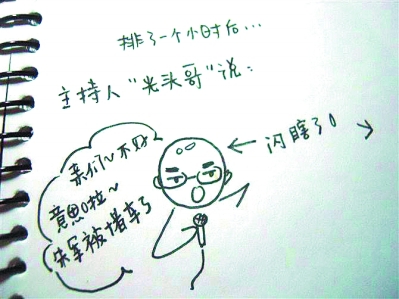 排了一个小时后…
主持人“光头哥”说：
亲们~不好
意思啦~
朱军被堵车了
闪瞎了